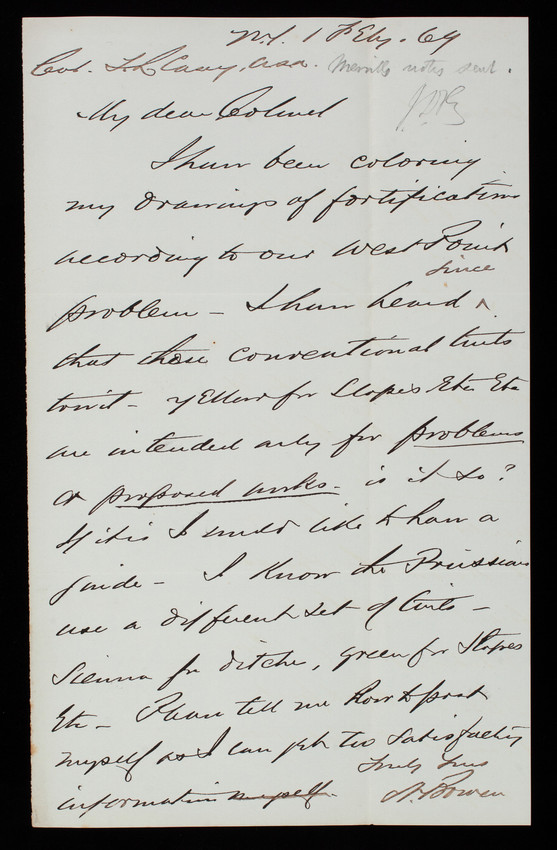 N.Y. 1 Feby. 69
Col. T. L. Casey, USA. Merrills notes sent.
My dear Colonel
I have been coloring
my drawings of fortifications
according to our West Point
since
problem - I have heard ^
that these conventional tints
towit - yellow for Slopes Etc Etc
are intended only for problems
or proposed works - is it so?
If it is I would like to have a
guide - I know the Prussians
use a different set of tints -
Sienna for ditches, green for Slopes
Etc - Please tell me how to post
myself as I can get no satisfactory
information myself.
Truly Yours
N. Bowen